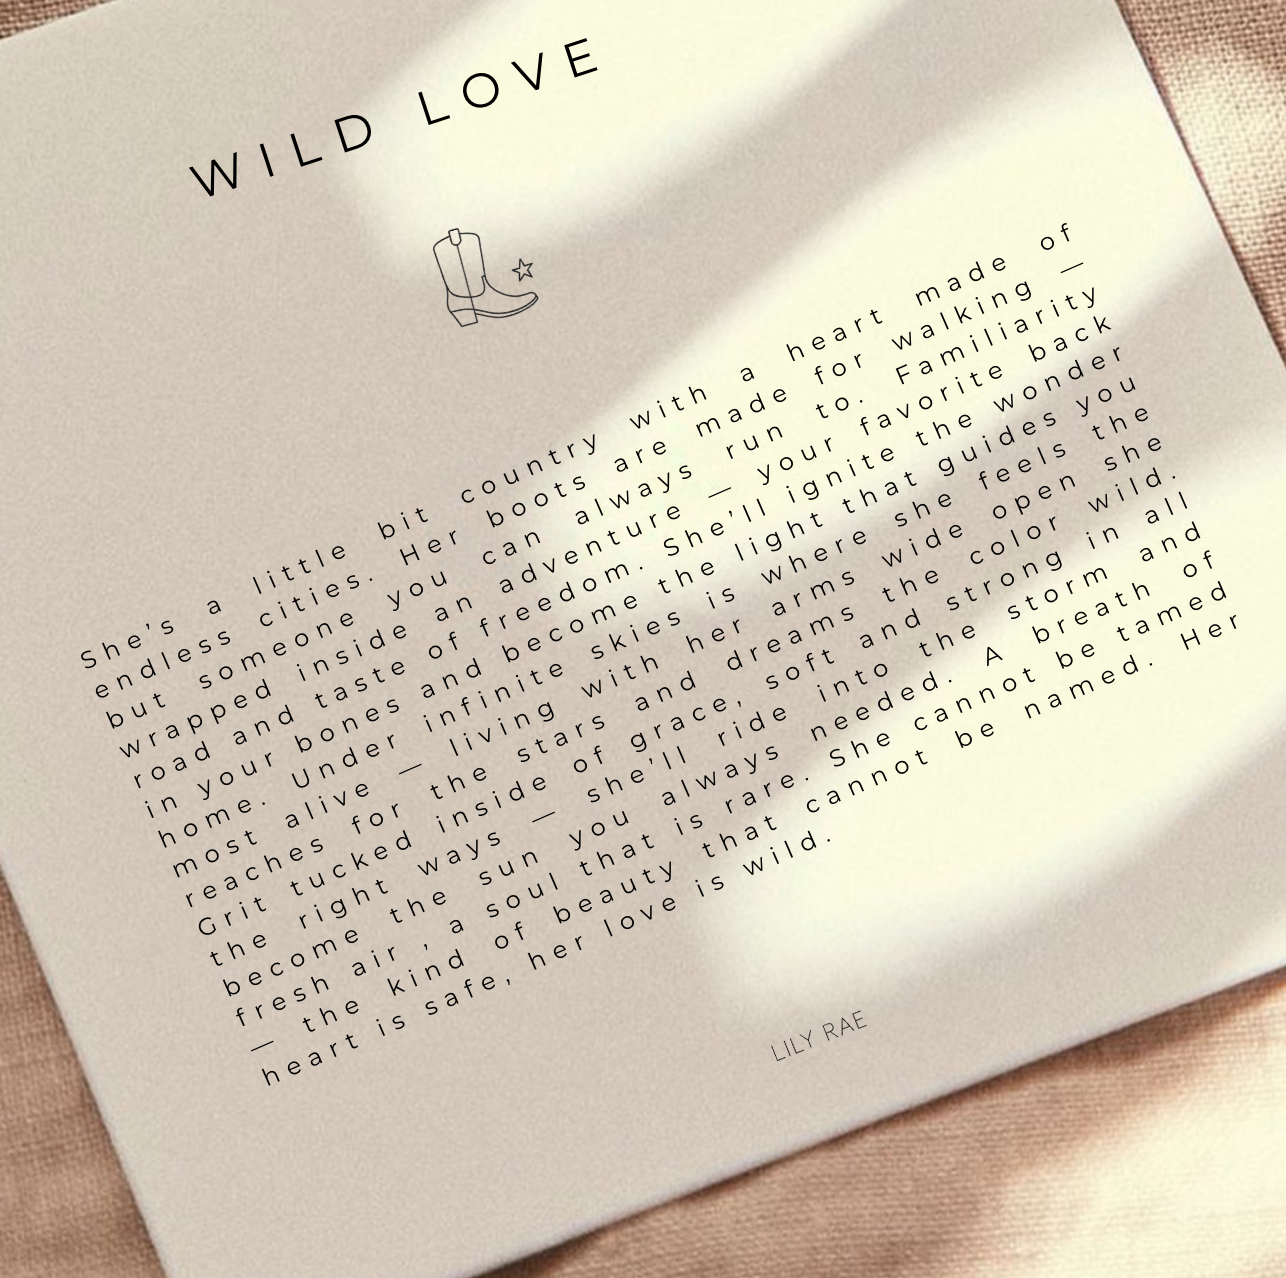 WILD LOVE
She's a little bit country with a heart made of
endless cities. Her boots are made for walking —
but someone you can always run to. Familiarity
wrapped inside an adventure — your favorite back
road and taste of freedom. She'll ignite the wonder
in your bones and become the light that guides you
home. Under infinite skies is where she feels the
most alive — living with her arms wide open she
reaches for the stars and dreams the color wild.
Grit tucked inside of grace, soft and strong in all
the right ways — she'll ride into the storm and
become the sun you always needed. A breath of
fresh air , a soul that is rare. She cannot be tamed
— the kind of beauty that cannot be named. Her
heart is safe, her love is wild.
LILY RAE